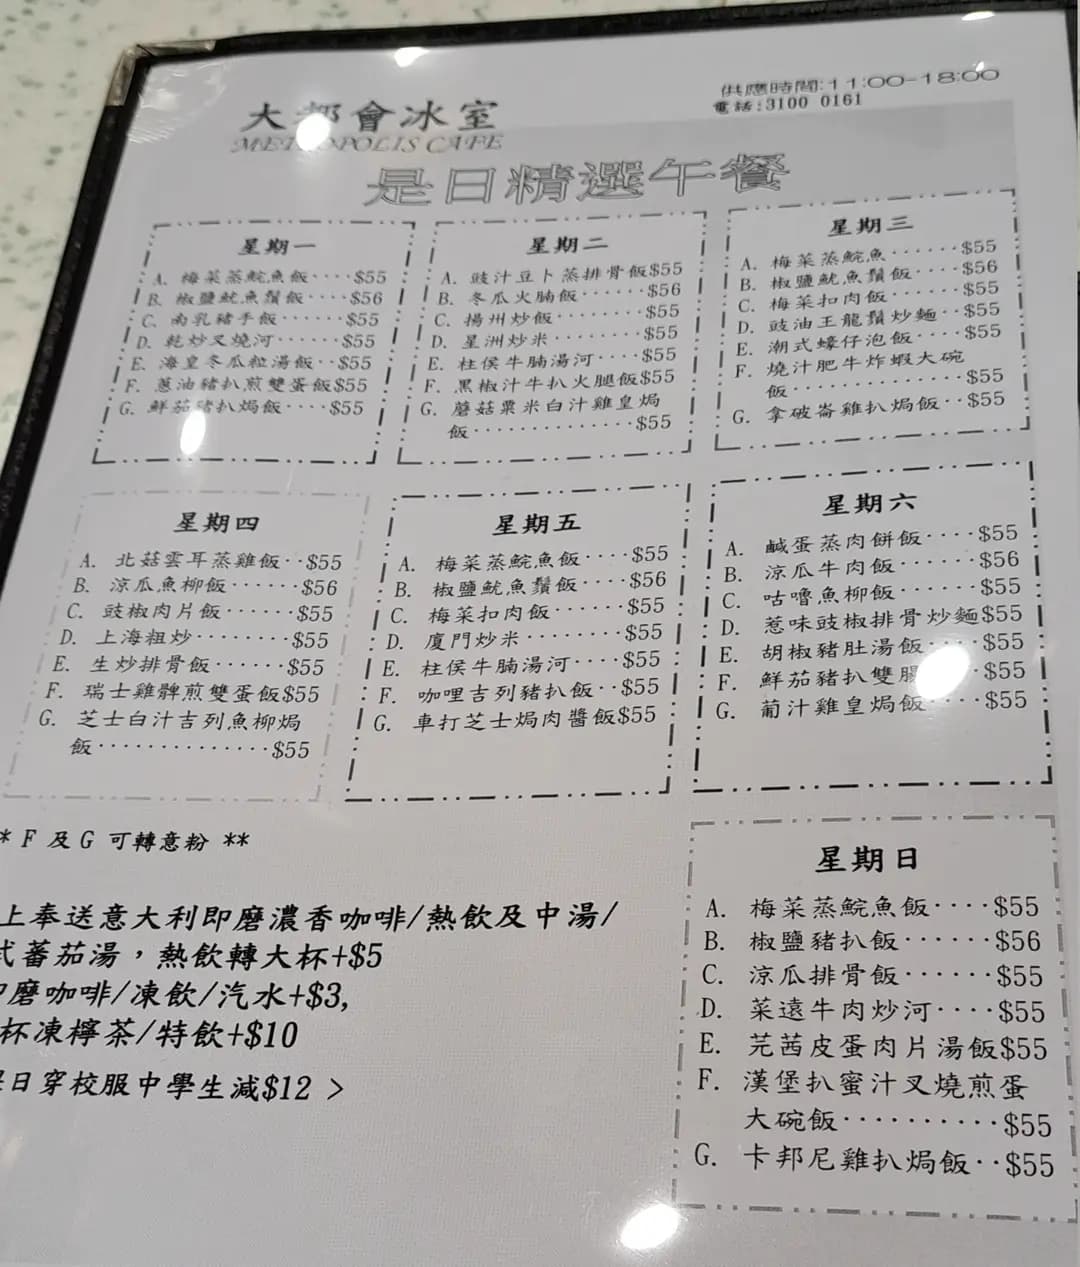 大都會冰室
METROPOLIS CAFE
供應時間:11:00-18:00
電話:3100 0161
是日精選午餐
星期一
A. 梅菜蒸鯇魚飯····$55
B. 椒鹽魷魚鬚飯····$56
C. 南乳豬手飯······$55
D. 乾炒叉燒河······$55
E. 海皇冬瓜粒湯飯··$55
F. 蔥油豬扒煎雙蛋飯$55
G. 鮮茄豬扒焗飯····$55
星期二
A. 豉汁豆卜蒸排骨飯$55
B. 冬瓜火腩飯······$56
C. 揚州炒飯········$55
D. 星洲炒米········$55
E. 柱侯牛腩湯河····$55
F. 黑椒汁牛扒火腿飯$55
G. 蘑菇粟米白汁雞皇焗
飯·············$55
星期三
A. 梅菜蒸鯇魚······$55
B. 椒鹽魷魚鬚飯····$56
C. 梅菜扣肉飯······$55
D. 豉油王龍鬚炒麵··$55
E. 潮式蠔仔泡飯····$55
F. 燒汁肥牛炸蝦大碗
飯··············$55
G. 拿破崙雞扒焗飯··$55
星期四
A. 北菇雲耳蒸雞飯··$55
B. 涼瓜魚柳飯······$56
C. 豉椒肉片飯······$55
D. 上海粗炒········$55
E. 生炒排骨飯······$55
F. 瑞士雞髀煎雙蛋飯$55
G. 芝士白汁吉列魚柳焗
飯··············$55
星期五
A. 梅菜蒸鯇魚飯····$55
B. 椒鹽魷魚鬚飯····$56
C. 梅菜扣肉飯······$55
D. 廈門炒米········$55
E. 柱侯牛腩湯河····$55
F. 咖哩吉列豬扒飯··$55
G. 車打芝士焗肉醬飯$55
星期六
A. 鹹蛋蒸肉餅飯····$55
B. 涼瓜牛肉飯······$56
C. 咕嚕魚柳飯······$55
D. 惹味豉椒排骨炒麵$55
E. 胡椒豬肚湯飯··$55
F. 鮮茄豬扒雙腸 $55
G. 葡汁雞皇焗飯····$55
* F 及 G 可轉意粉 **
上奉送意大利即磨濃香咖啡/熱飲及中湯/
式蕃茄湯，熱飲轉大杯+$5
即磨咖啡/凍飲/汽水+$3,
杯凍檸茶/特飲+$10
是日穿校服中學生減$12 >
星期日
A. 梅菜蒸鯇魚飯····$55
B. 椒鹽豬扒飯······$56
C. 涼瓜排骨飯······$55
D. 菜遠牛肉炒河····$55
E. 芫茜皮蛋肉片湯飯$55
F. 漢堡扒蜜汁叉燒煎蛋
大碗飯··········$55
G. 卡邦尼雞扒焗飯··$55